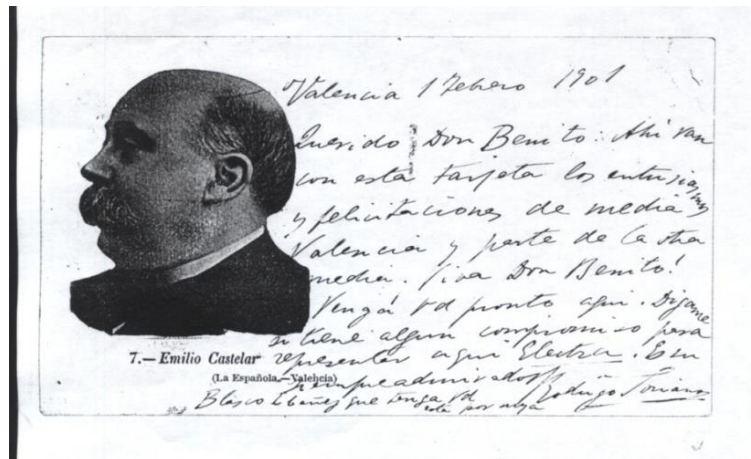 Valencia 1 Febrero 1901
Querido Don Benito: Ahi van
con esta tarjeta los entusiasmos
y felicitaciones de media
Valencia y parte de la otra
media. Viva Don Benito!
Venga Vd pronto aqui. Digame
si tiene algun compromiso para
representar aqui Electra. Es su
siempre admirador
Rodrigo Soriano
Blasco Ibañez que tenga Vd
esta por suya
7.—Emilio Castelar
(La Española.—Valencia)